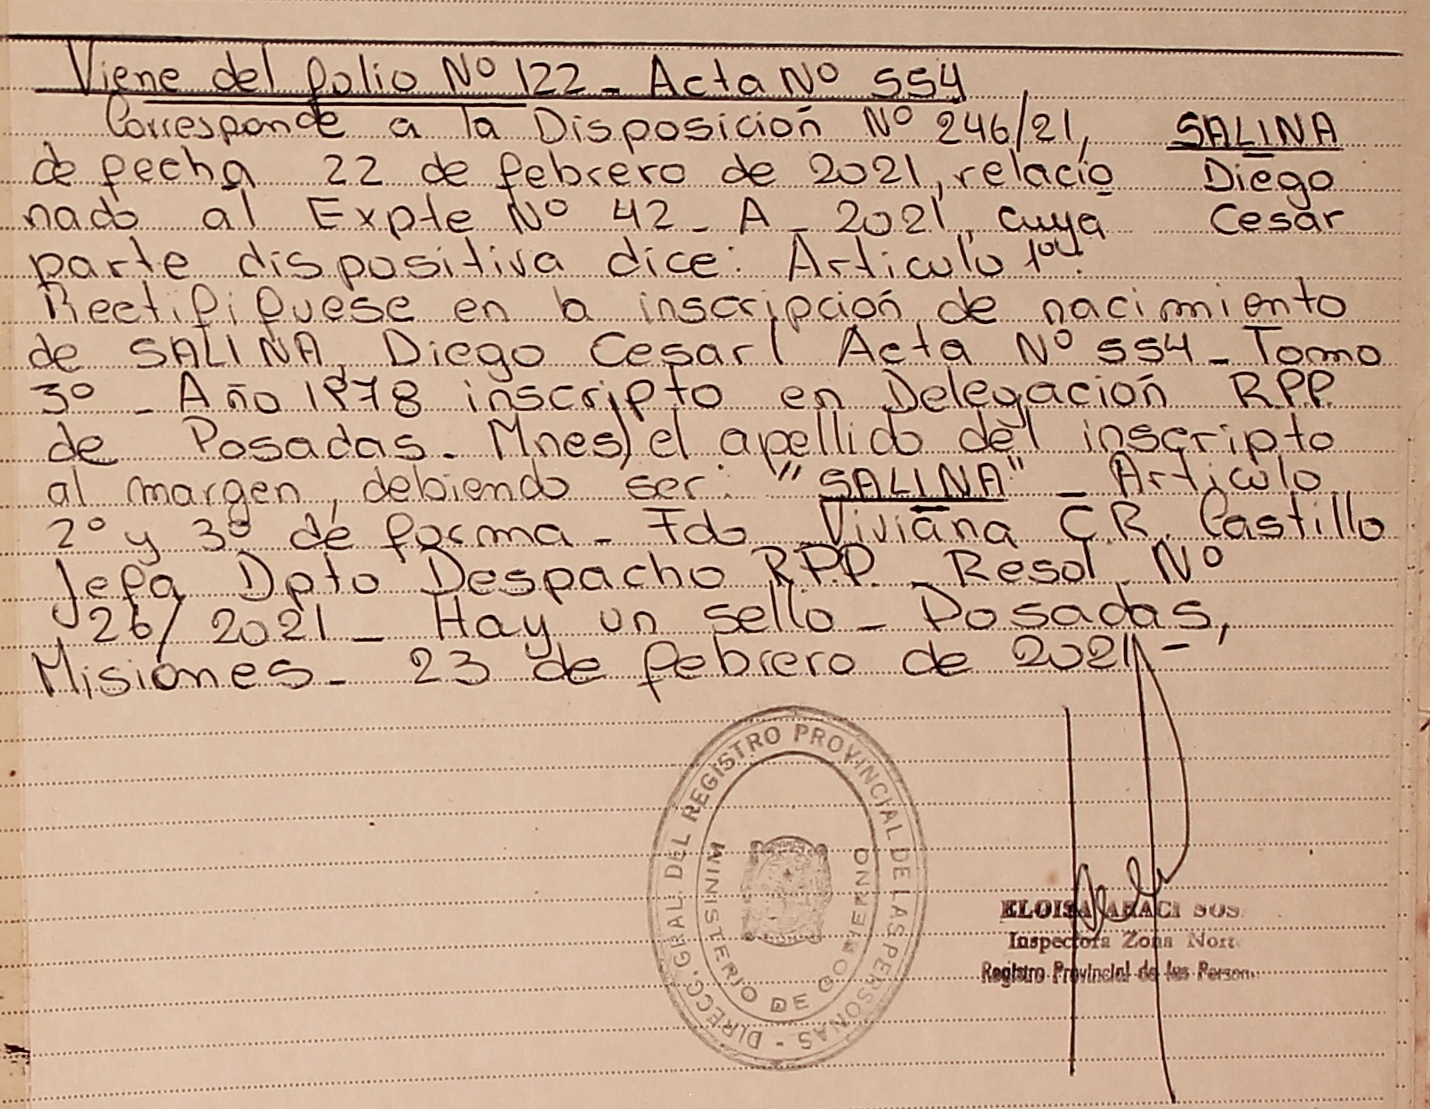 Viene del folio Nº 122 - Acta Nº 554
Corresponde a la Disposición Nº 246/21,
SALINA
de fecha 22 de febrero de 2021, relacio
Diego
nado al Expte Nº 42 - A - 2021, cuya
Cesar
parte dispositiva dice: Articulo 1ero:
Rectifiquese en la inscripción de nacimiento
de SALINA, Diego Cesar ( Acta Nº 554 - Tomo
3º - Año 1978 inscripto en Delegación RPP.
de Posadas - Mnes) el apellido del inscripto
al margen, debiendo ser: "SALINA" - Articulo
2º y 3º de forma - Fdo Viviana C.R. Castillo
Jefa Dpto Despacho R.P.P. - Resol. Nº
26/2021 - Hay un sello - Posadas,
Misiones - 23 de febrero de 2021 -
DIRECC. GRAL. DEL REGISTRO PROVINCIAL DE LAS PERSONAS -
MINISTERIO DE GOBIERNO
ELOISA ARACI SOS
Inspectora Zona Nort
Registro Provincial de las Person